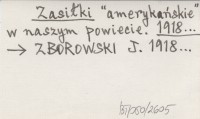 Zasiłki "amerykańskie"
w naszym powiecie. 1918...
→ ZBOROWSKI J. 1918...
/80/2605